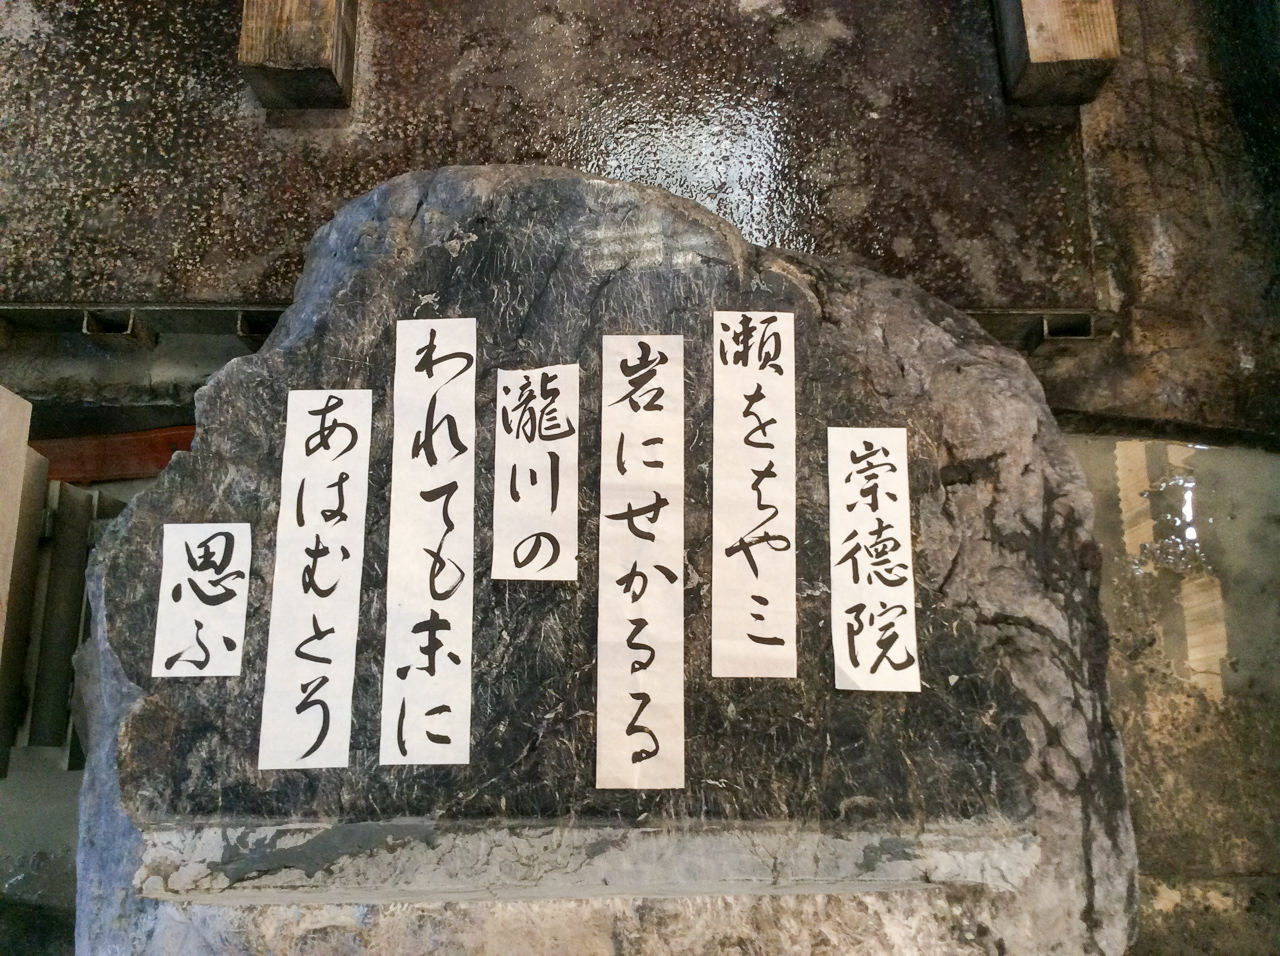 崇德院
瀬をはやミ
岩にせかるる
瀧川の
われても末に
あはむとそ
思ふ